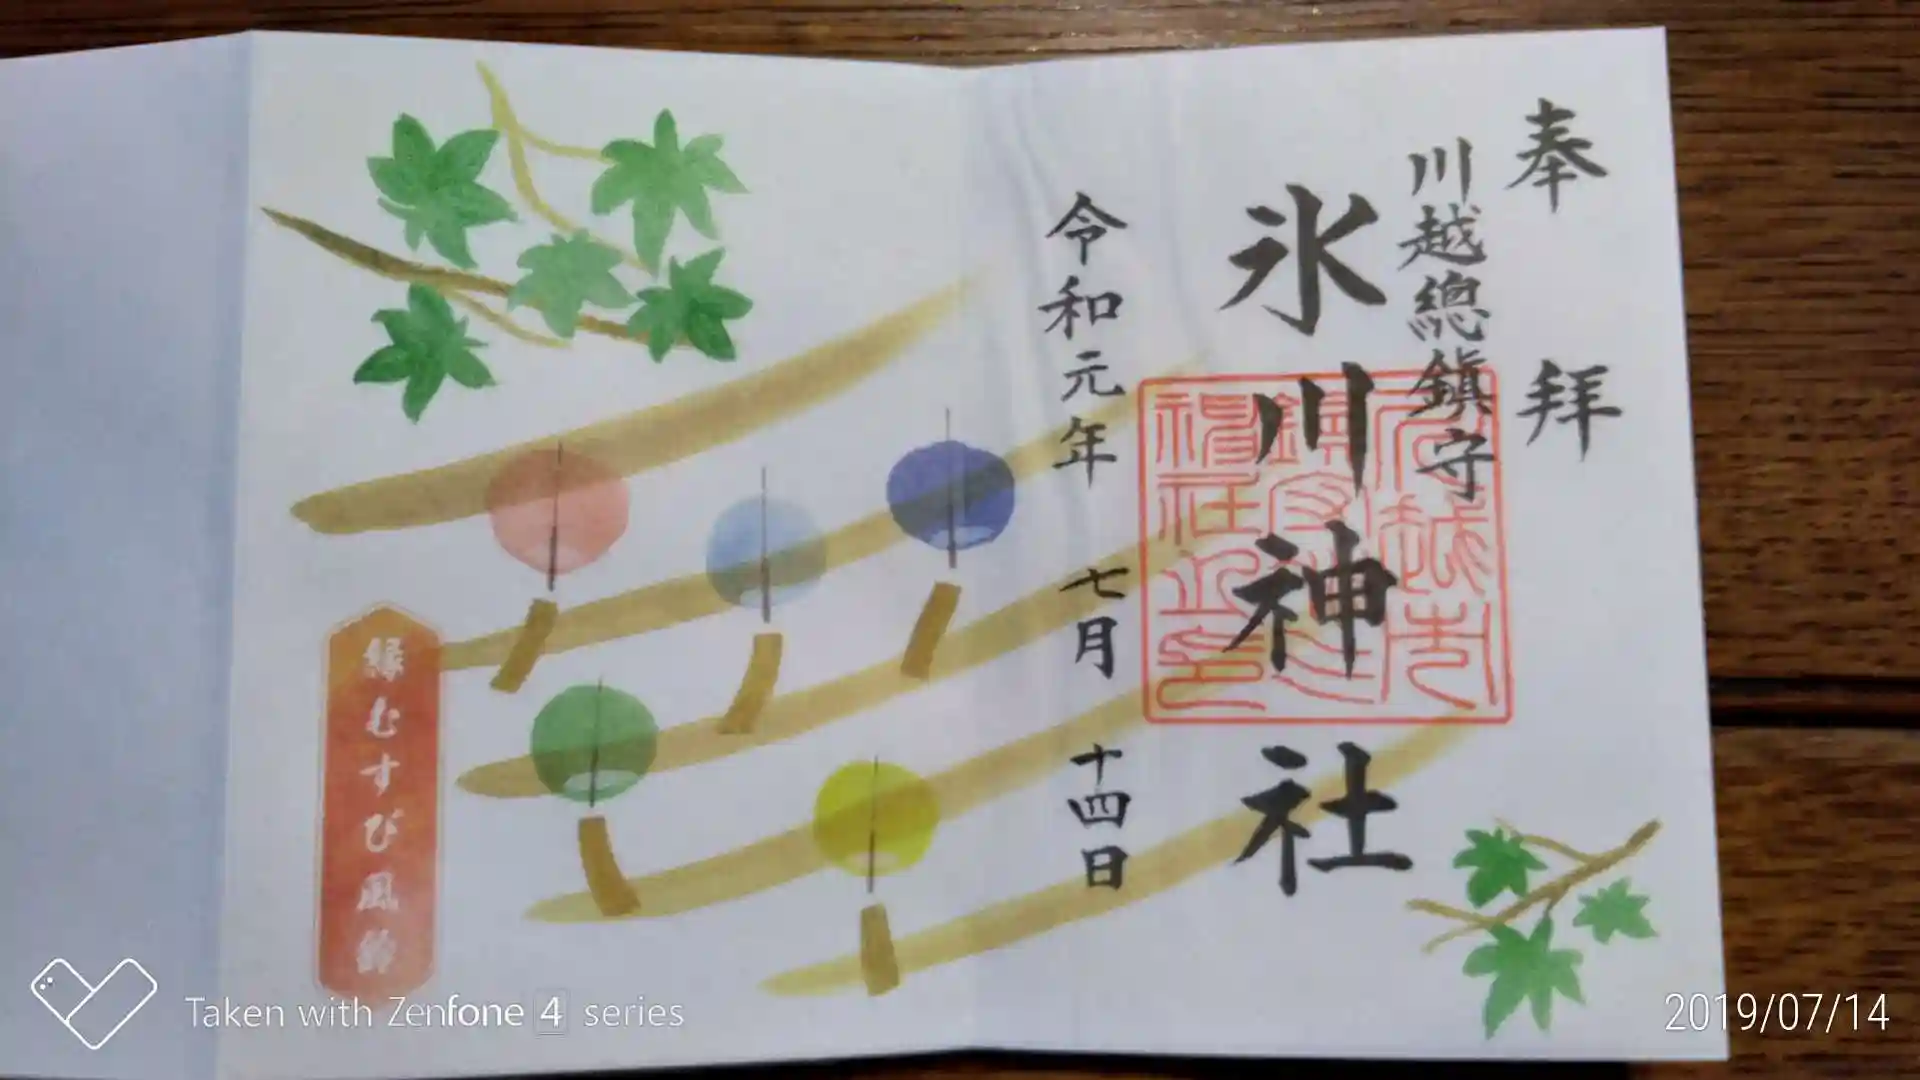 奉拝
川越總鎮守
氷川神社
令和元年七月十四日
縁むすび風鈴
Taken with Zenfone 4 series
2019/07/14